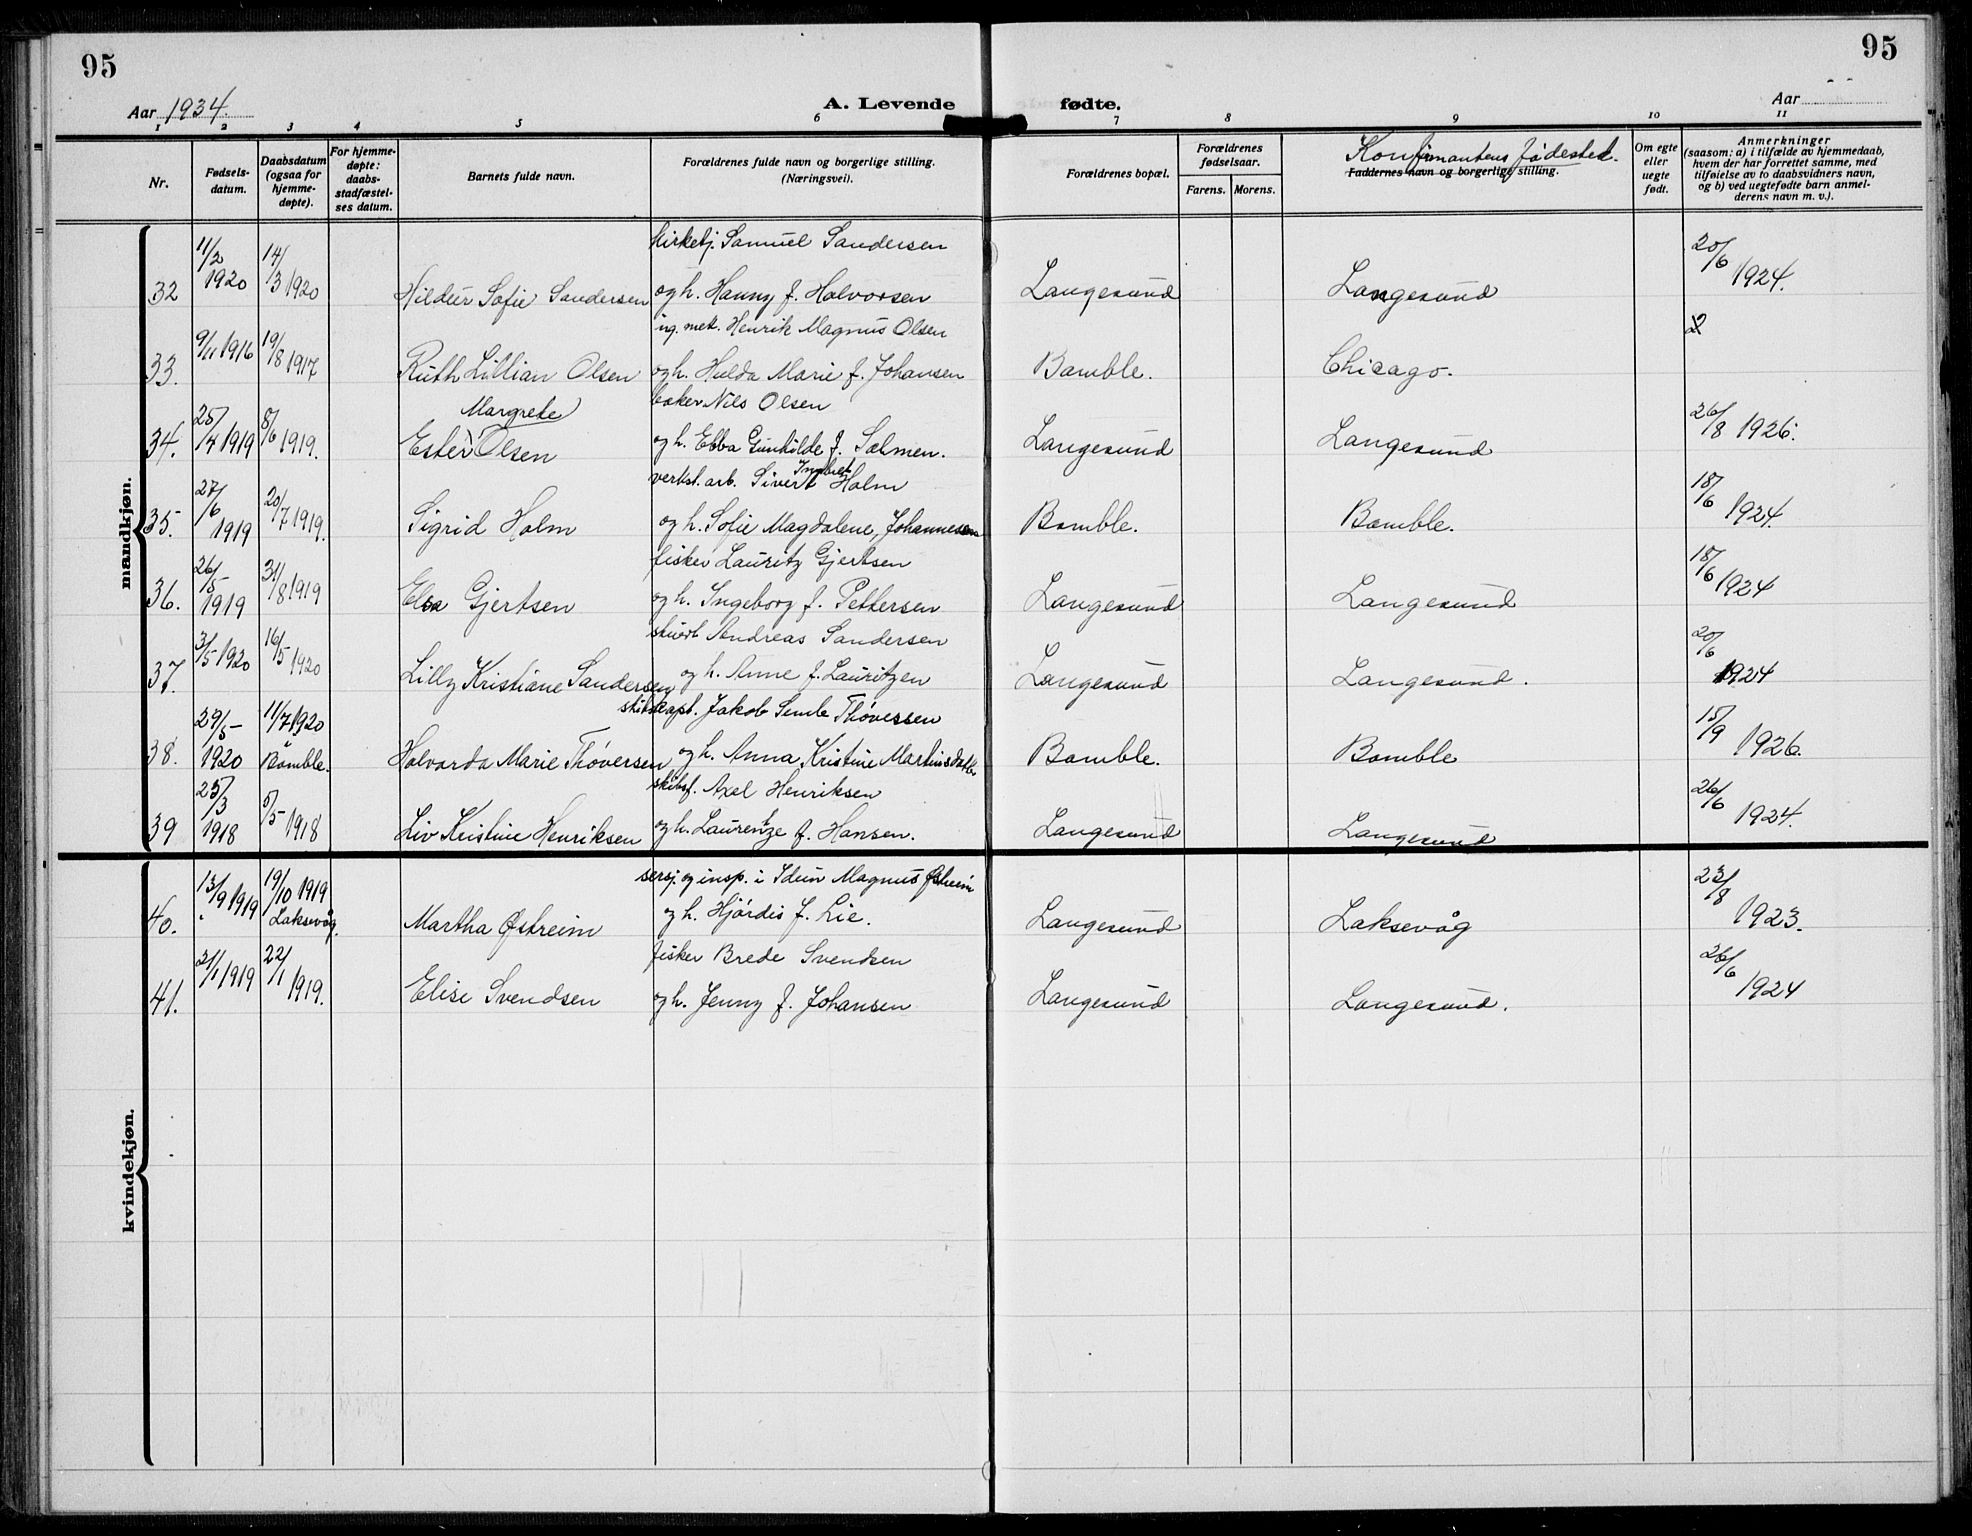 95
95
Aar 1934.
A. Levende fødte.
Aar
1 2 3 4 5 6 7 8 9 10 11
Nr.
Fødsels-
datum.
Daabsdatum
(ogsaa for
hjemme-
døpte).
For hjemme-
døpte:
daabs-
stadfæstel-
ses datum.
Barnets fulde navn.
Forældrenes fulde navn og borgerlige stilling.
(Næringsvei).
Forældrenes bopæl.
Forældrenes
fødselsaar.
Farens. Morens.
Konfirmantens fødested.
Faddernes navn og borgerlige stilling.
Om egte
eller
uegte
født.
Anmerkninger
(saasom: a) i tilfælde av hjemmedaab,
hvem der har forrettet samme, med
tilføielse av to daabsvidners navn,
og b) ved uegtefødte barn anmel-
derens navn m. v.).
mandkjøn.
kirketj. Samuel Sandersen
32 11/2 1920 14/3 1920 Hildur Sofie Sandersen og h. Hanny f. Halvorsen Langesund Langesund 20/6 1924.
ing. mek. Henrik Magnus Olsen
33. 9/11 1916 19/8 1917 Ruth Lillian Olsen og h. Hulda Marie f. Johansen Bamble. Chicago.
Margrete baker Nils Olsen
34. 25/4 1919 8/6 1919. Ester Olsen og h. Ebba Gunhilde f. Salmen. Langesund Langesund 26/8 1926.
Ingbret
verkst. arb. Sivert Holm
35. 27/6 1919 20/7 1919. Sigrid Holm og h. Sofie Magdalene, Johannesen Bamble. Bamble. 18/6 1924.
fisker Lauritz Gjertsen
36. 26/5 1919 31/8 1919 Elsa Gjertsen og h. Ingeborg f. Pettersen Langesund Langesund 18/6 1924
stuert Andreas Sandersen
37. 3/5 1920 16/5 1920 Lilly Kristiane Sandersen og h. Anne f. Lauritzen Langesund Langesund. 20/6 1924
skibskapt. Jakob Semb Thóvessen
38. 29/5 1920 11/7 1920 Bamble. Halvarda Marie Thóversen og h. Anna Kristine Martinsdatter Bamble. Bamble 15/9 1926.
skibsf. Axel Henriksen
39 25/3 1918 5/5 1918 Liv Kristine Henriksen og h. Laurentze f. Hansen. Langesund Langesund 26/6 1924.
kvindekjøn.
sersj. og insp. i Idun Magnus Østreim
40. 13/9 1919 19/10 1919 Laksevåg. Martha Østreim og h. Hjórdis f. Lie. Langesund Laksevåg 23/8 1923.
fisker Brede Svendsen
41. 21/1 1919 22/1 1919. Elise Svendsen og h. Jenny f. Johansen Langesund Langesund. 26/6 1924